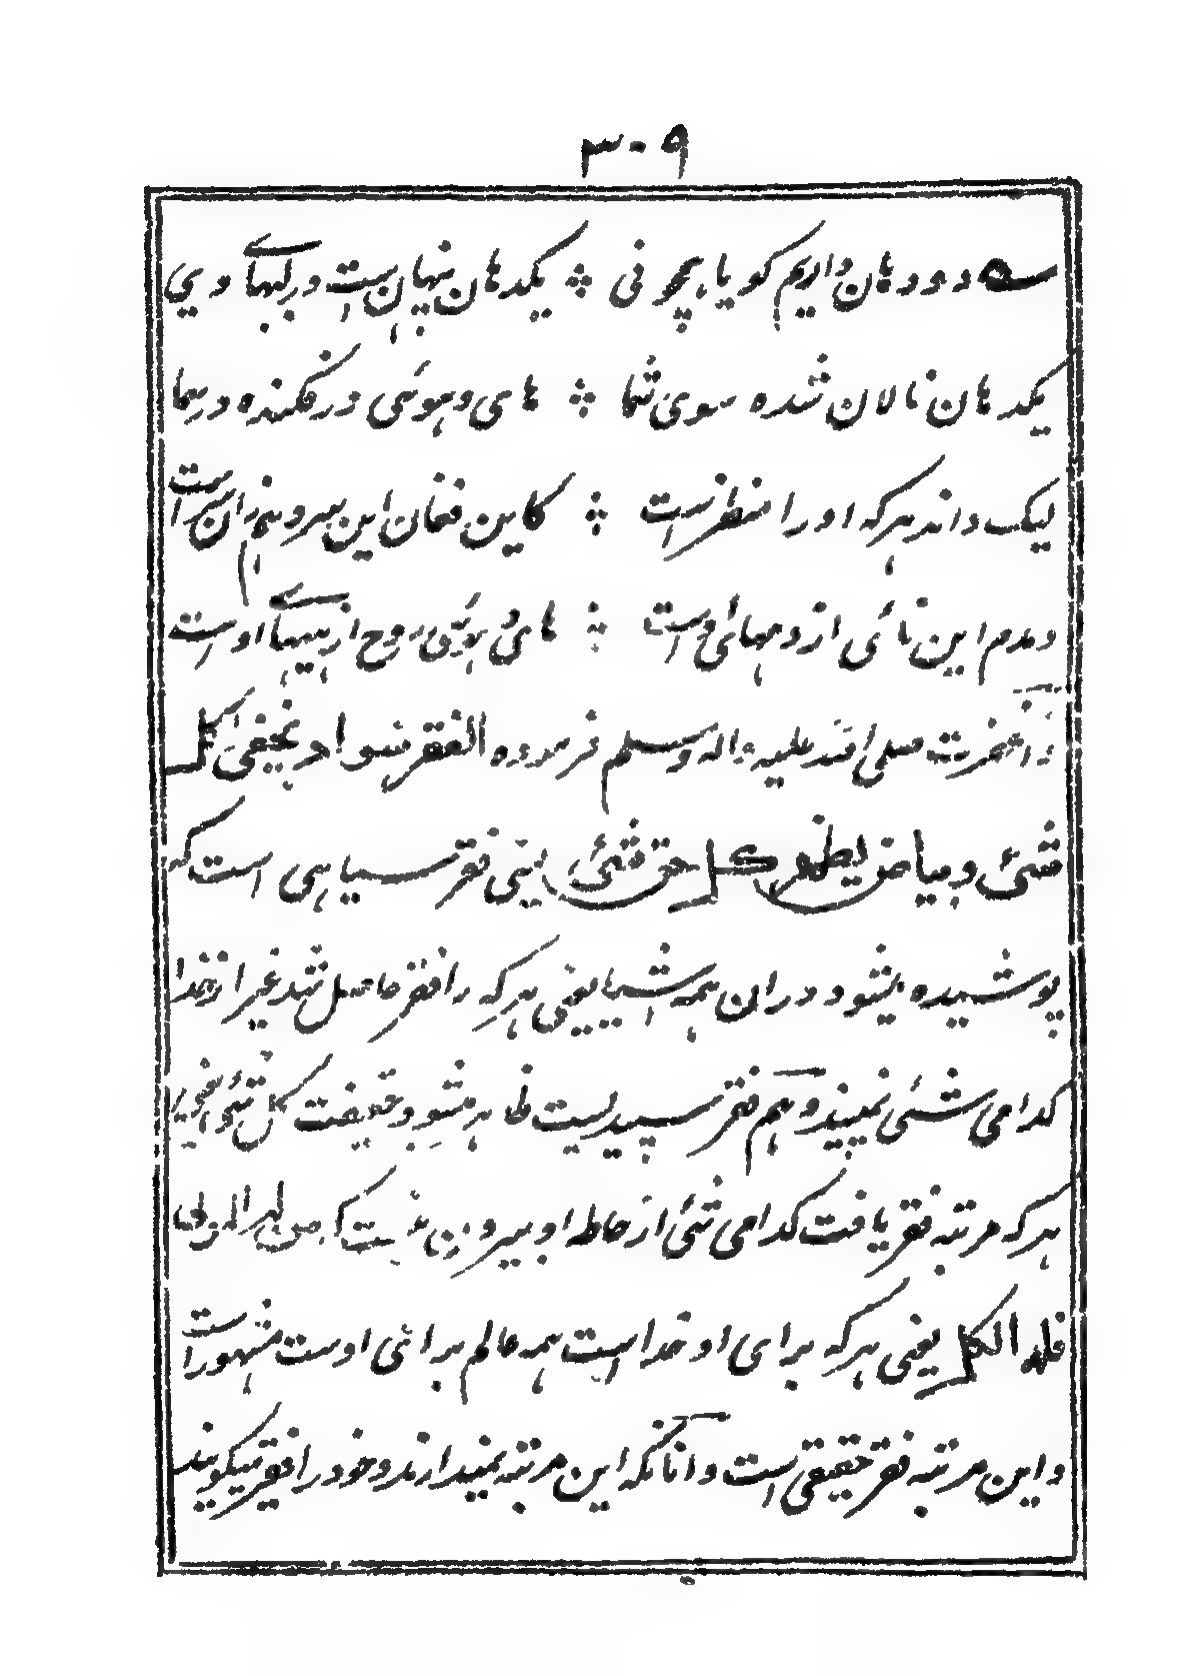 ۳۰۹
دو دهان داریم گویا همچو نی ؞ یکدهان پنهانست در لبهاے وی
یکدهان نالان شده سوی شما ؞ های و هوئی در فکنده در سما
لیک داند هرکه او را منظرست ؞ کاین فغان این سرو هم زان سرست
دمدم این نائی از دمهائی اوست ؞ های هوئی روح از هیهاے اوست
و آنحضرت صلی الله علیه واله وسلم فرموده الفقر سواد یخفی کل
شئ وبیاض یظهر کل حق شئ یعنی فقر سیاهی است که
پوشیده میشود دران همه اشیا یعنی هرکه را فقر حاصل شد غیر از خدا
کدامی شئی نمیبیند و هم فقر سپیدیست ظاهر میشود حقیقت کل شئی
هرکه مرتبه فقر یافت کدامی شئی از حاطه او بیرون نیست که من له المولی
فله الکل یعنی هرکه برای او خداست همه عالم برائی اوست مشهور است
و این مرتبه فقر حقیقی است و آنانکه این مرتبه نمیدارند و خود را فقیر میگویند